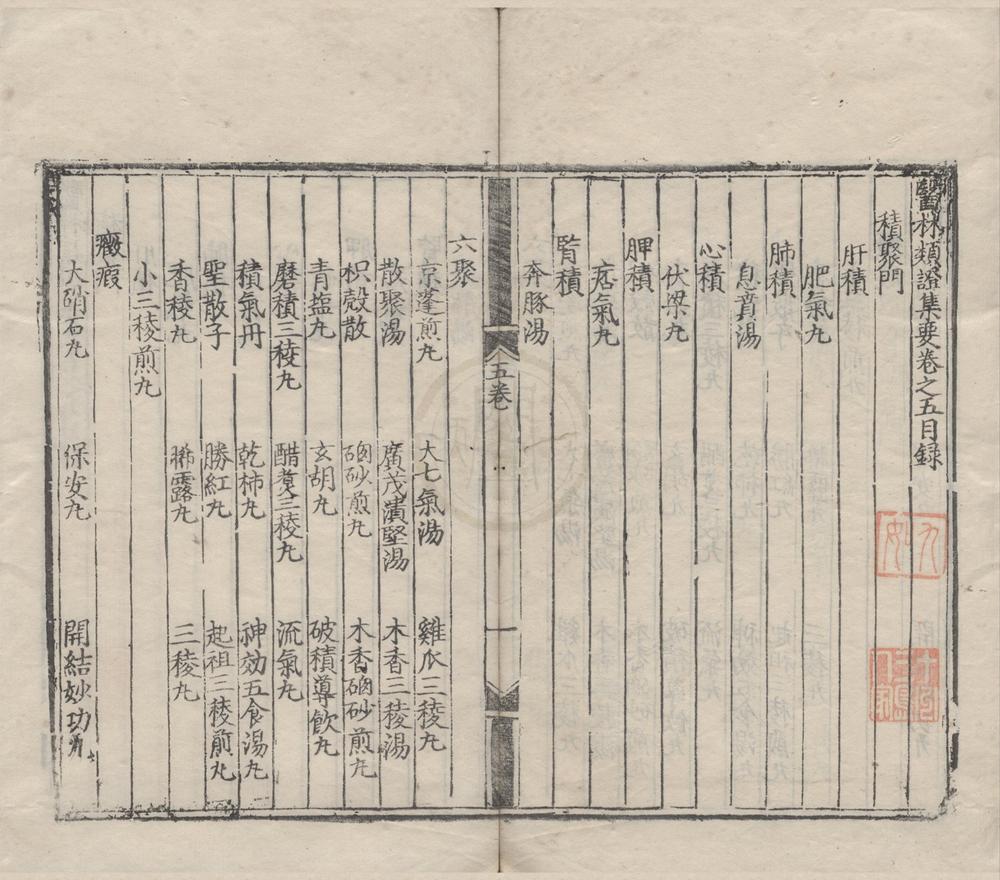 醫林類證集要卷之五目録
積聚門
肝積
肥氣九
肺積
息賁湯
心積
伏梁九
脾積
痞氣九
腎積
奔豚湯
五卷
一
六聚
京蓬煎九 大七氣湯 雞爪三稜九
散聚湯 廣茂潰堅湯 木香三稜湯
枳殼散 硇砂煎九 木香硇砂煎九
青盐九 玄胡九 破積導飲九
磨積三稜九 醋煑三稜九 流氣九
積氣丹 乾柿九 神効五食湯九
聖散子 勝紅九 起祖三稜煎九
香稜九 曉露九 三稜九
小三稜煎九
癥瘕
大硝石九 保安九 開結妙功九